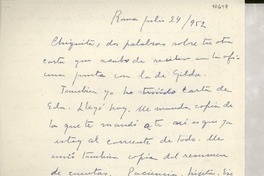 Roma julio 24/952
Chiquita, dos palabras sobre tu otra
carta que acabo de recibir en la ofi
cina junto con la de Gilda.
También ya he tenido carta de
Eda. Llegó hoy. Me manda copia de
la que te mandó a te así es que ya
estoy al corriente de todo. Me
envió también copia del resumen
de cuentas. Paciencia, hijita,